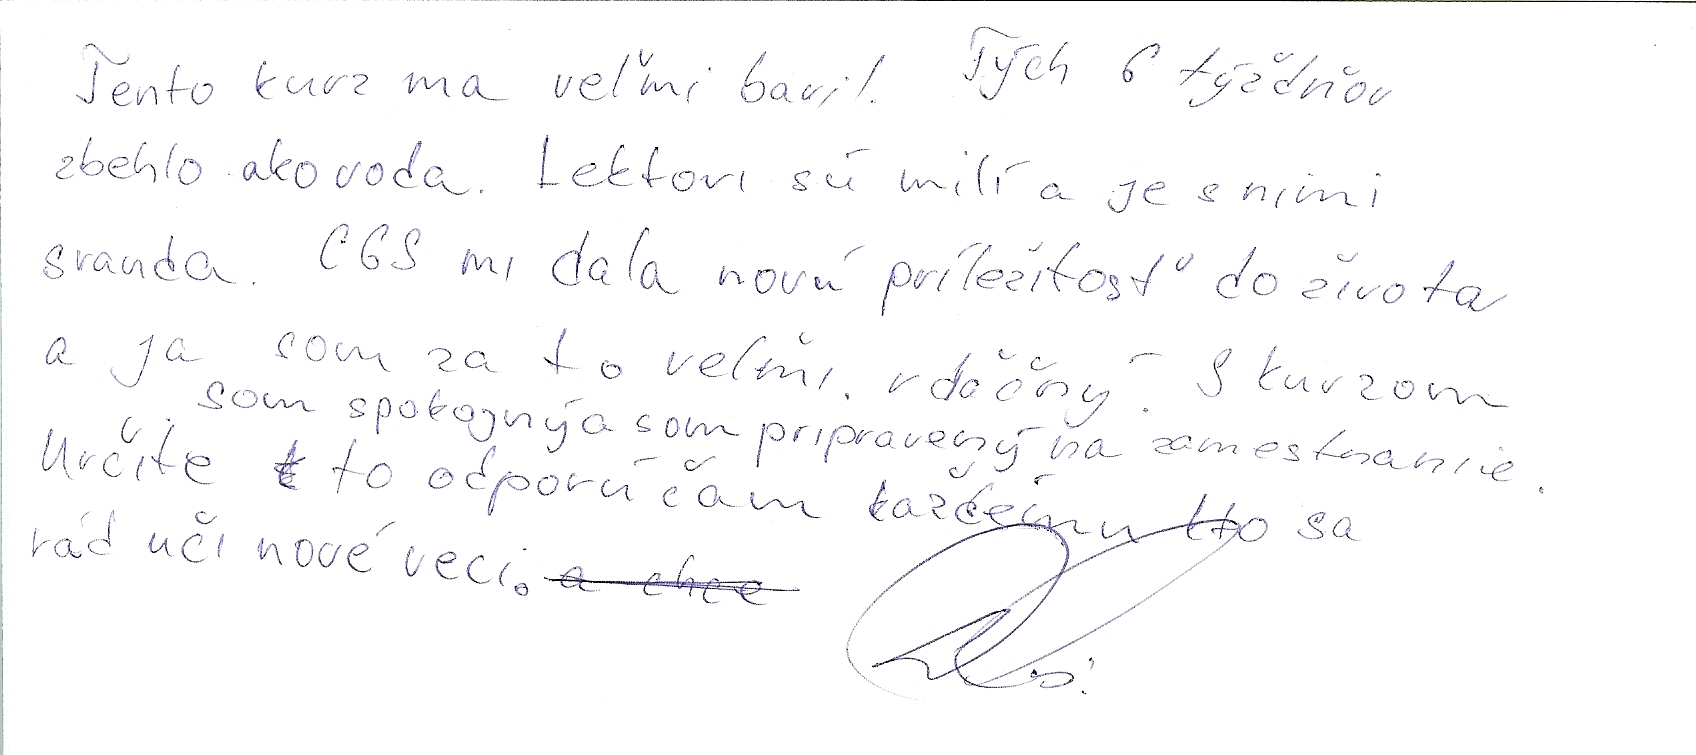 Tento kurz ma veľmi bavil. Tých 6 týždňov
zbehlo ako voda. Lektori sú milí a je s nimi
sranda. CGS mi dala novú príležitosť do života
a ja som za to veľmi. vďačný. S kurzom
som spokojný a som pripravený na zamestnanie.
Určite to odporúčam každému kto sa
rád učí nové veci. a chce